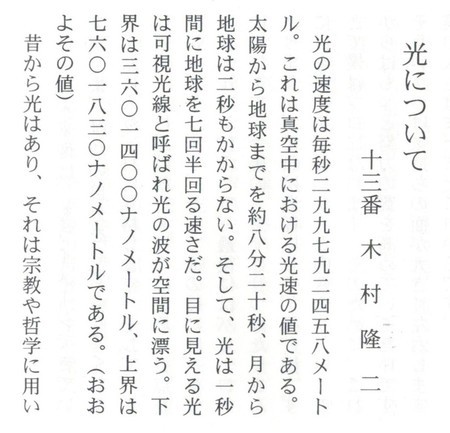 光について
十三番　木村隆二
光の速度は毎秒二九九七九二四五八メート
ル。これは真空中における光速の値である。
太陽から地球までを約八分二十秒、月から
地球は二秒もかからない。そして、光は一秒
間に地球を七回半回る速さだ。目に見える光
は可視光線と呼ばれ光の波が空間に漂う。下
界は三六〇ー四〇〇ナノメートル、上界は
七六〇ー八三〇ナノメートルである。（おお
よその値）
昔から光はあり、それは宗教や哲学に用い